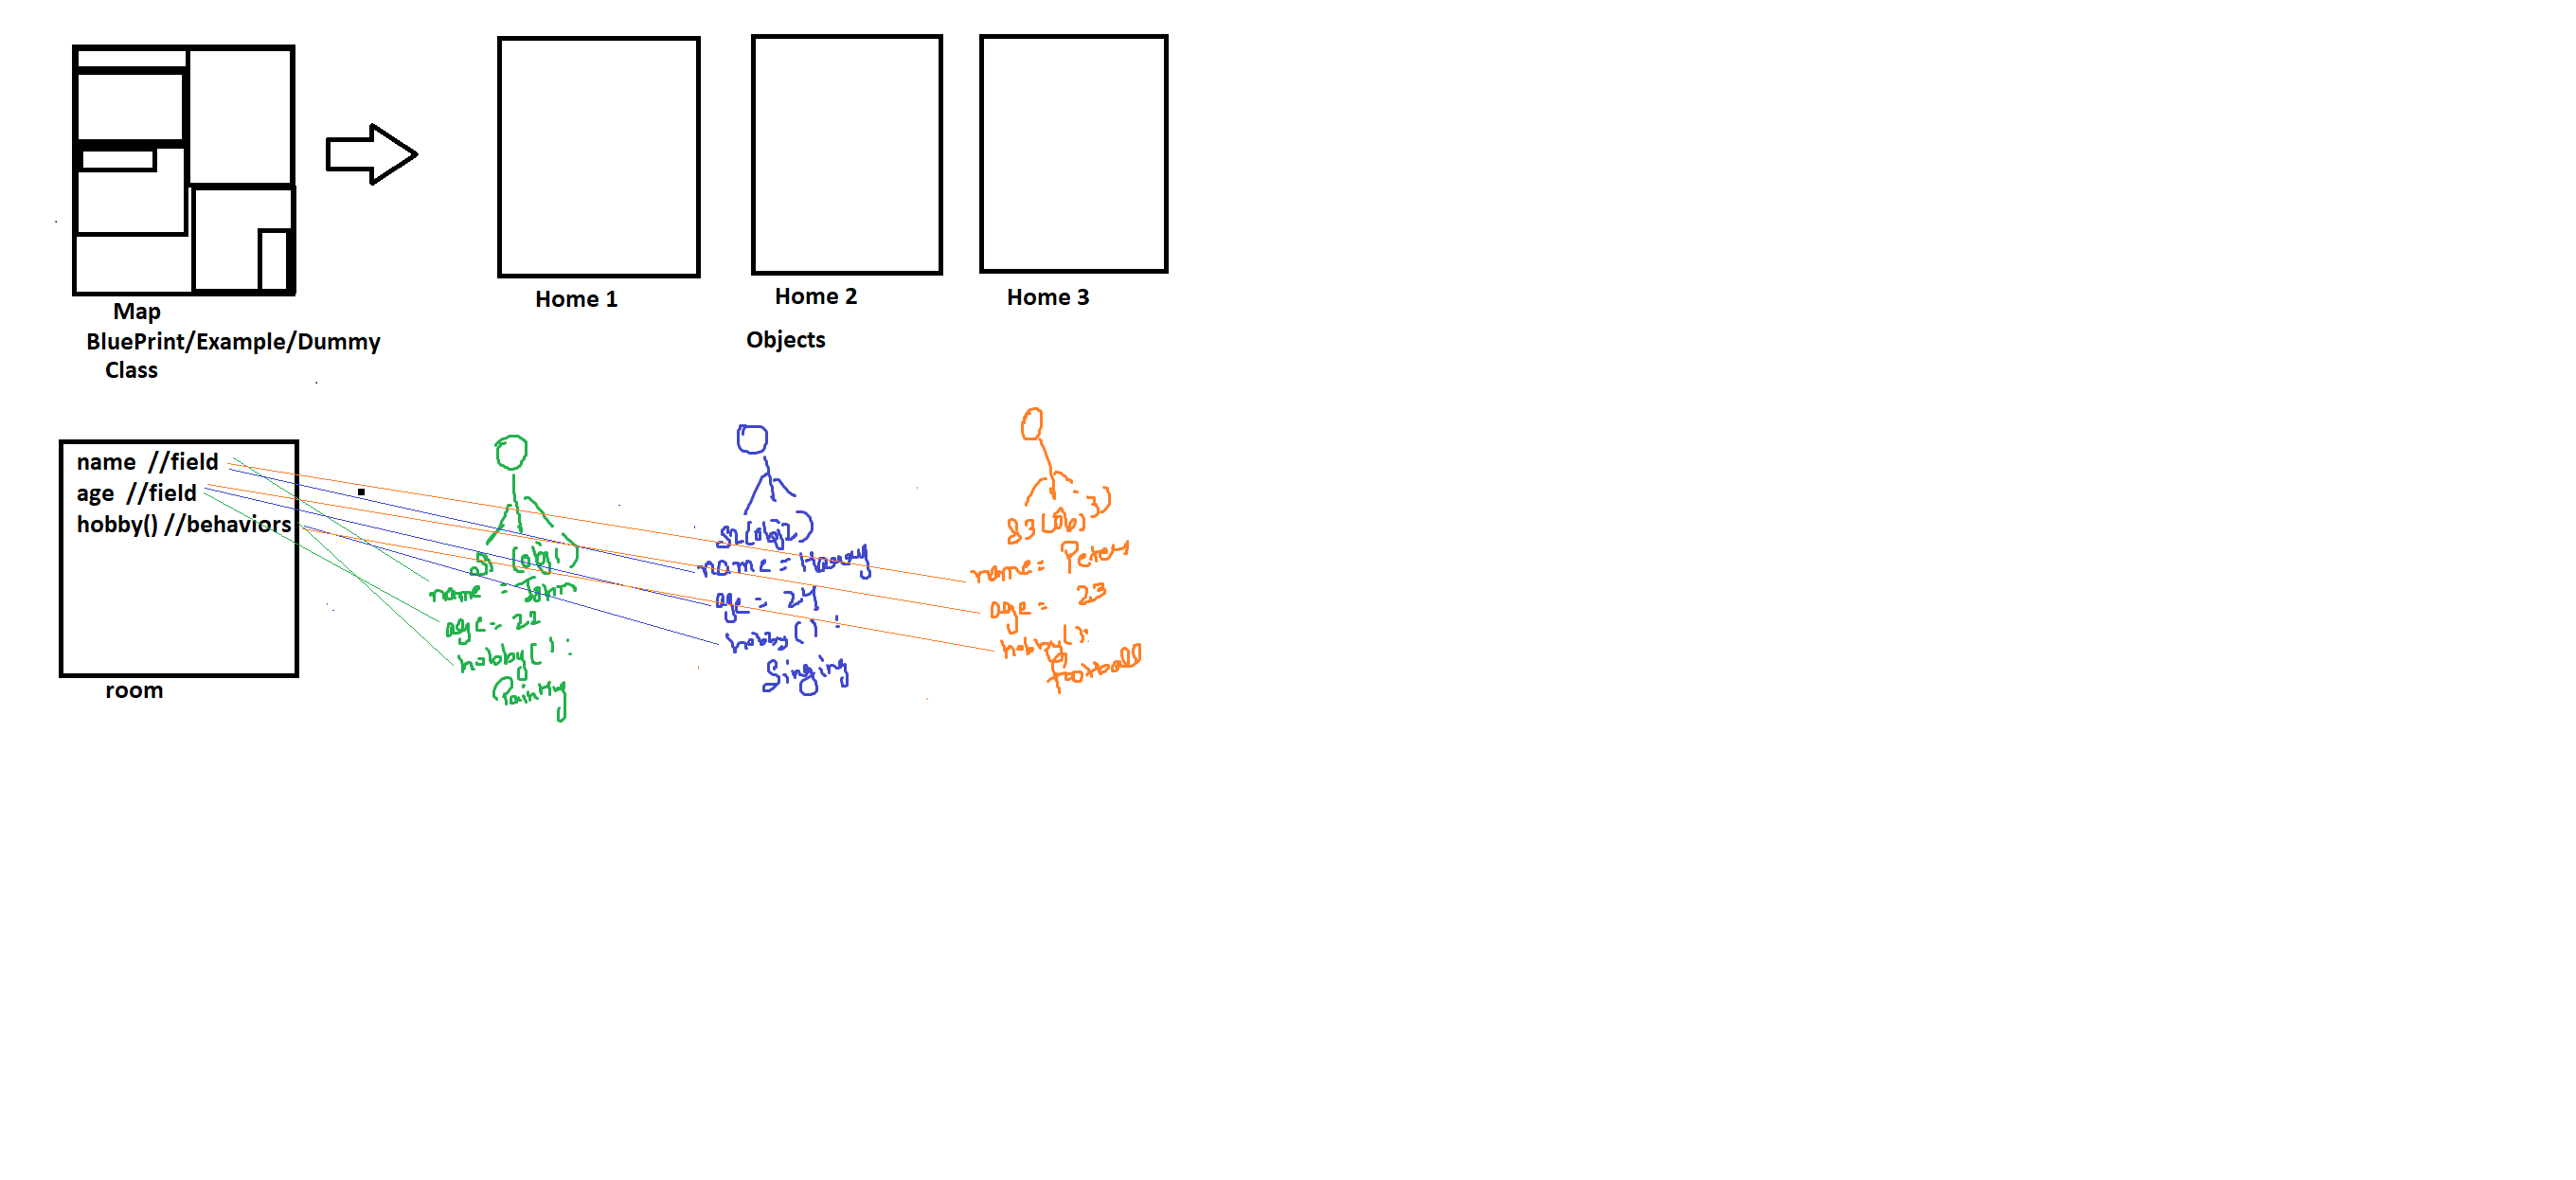 Home 1
Home 2
Home 3
Map
BluePrint/Example/Dummy
Class
Objects
name //field
age //field
hobby() //behaviors
room
s1 (obj1)
name = John
age = 22
hobby() :
Painting
s2(obj2)
name = Harry
age = 24
hobby() :
Singing
s3(obj3)
name = Peter
age = 23
hobby():
football